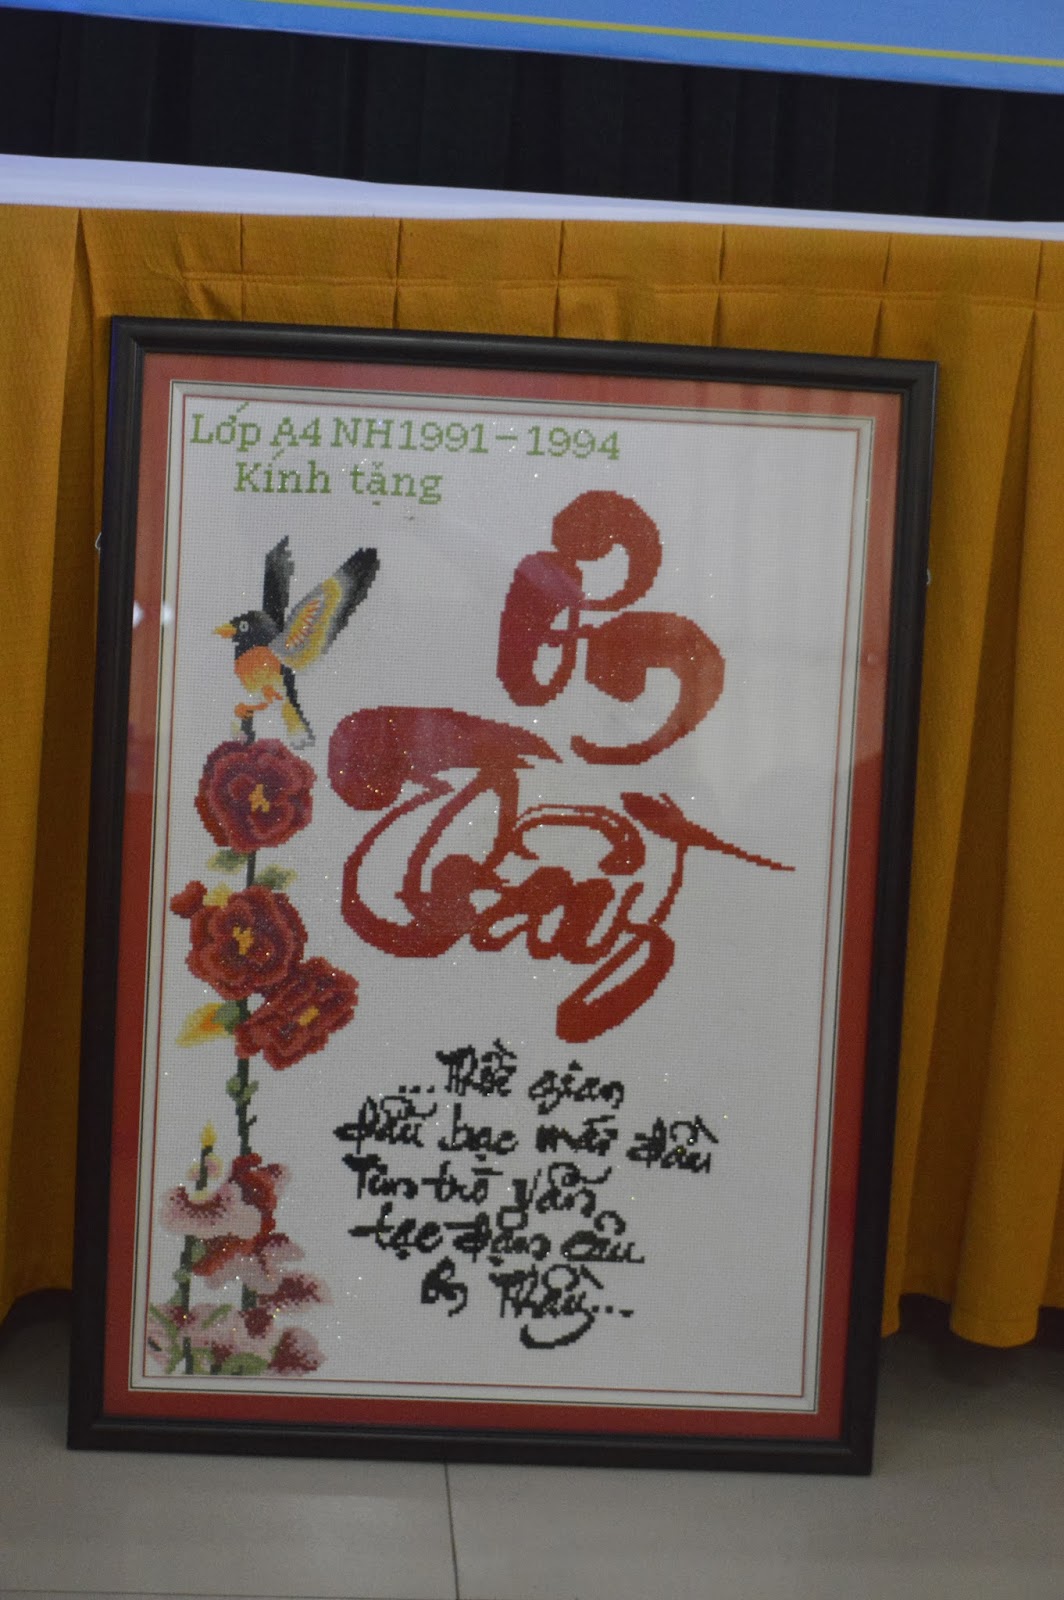 Lớp A4 NH1991-1994
Kính tặng
Ơn
Thầy
...Thời gian
dẫu bạc mái đầu
Tim trò vẫn
tạc đậm câu
ơn Thầy...